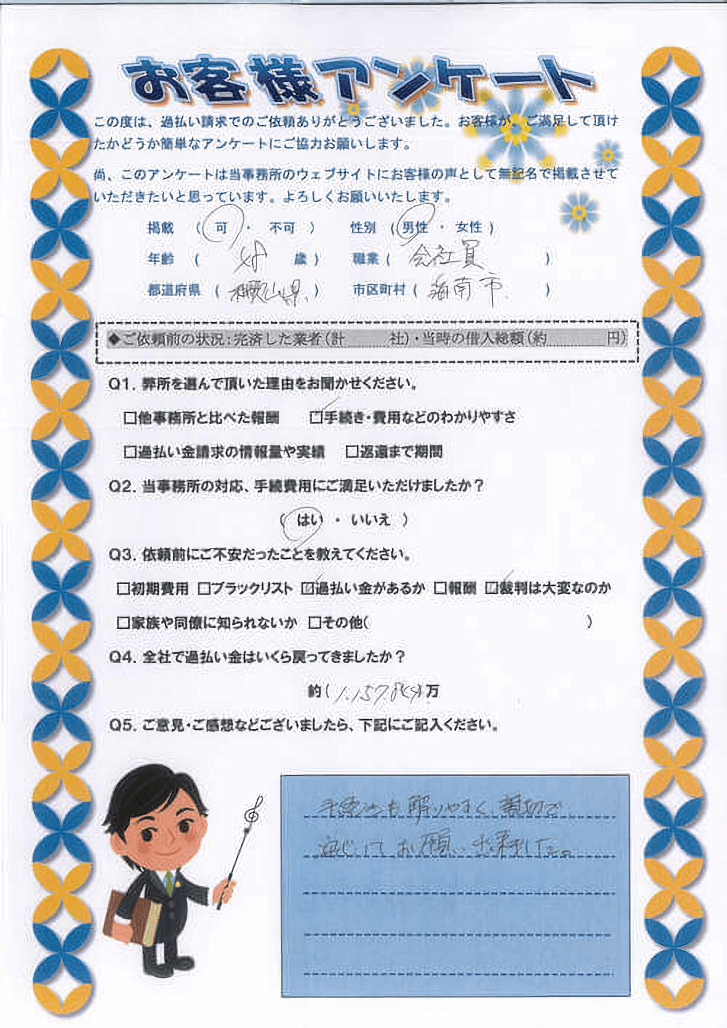 お客様アンケート
この度は、過払い請求でのご依頼ありがとうございました。お客様が、ご満足して頂け
たかどうか簡単なアンケートにご協力お願いします。
尚、このアンケートは当事務所のウェブサイトにお客様の声として無記名で掲載させて
いただきたいと思っています。よろしくお願いいたします。
掲載 ( 可 ・ 不可 ) 性別 ( 男性 ・ 女性 )
年齢 ( 歳 ) 職業 ( 会社員 )
都道府県 ( 和歌山県 ) 市区町村 ( 海南市 )
◆ご依頼前の状況:完済した業者(計 社)・当時の借入総額(約 円)
Q1. 弊所を選んで頂いた理由をお聞かせください。
□他事務所と比べた報酬 ☑手続き・費用などのわかりやすさ
□過払い金請求の情報量や実績 □返還まで期間
Q2. 当事務所の対応、手続費用にご満足いただけましたか?
( はい ・ いいえ )
Q3. 依頼前にご不安だったことを教えてください。
□初期費用 □ブラックリスト ☑過払い金があるか □報酬 ☑裁判は大変なのか
□家族や同僚に知られないか □その他( )
Q4. 全社で過払い金はいくら戻ってきましたか?
約( )万
Q5. ご意見・ご感想などございましたら、下記にご記入ください。
解りやすく 親切で
お願い出来ました。